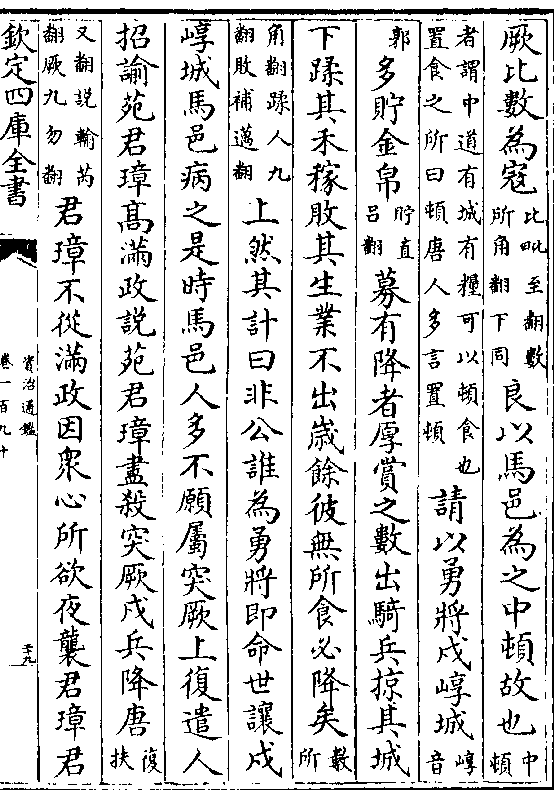 厥比數為寇比毗至翻數所角翻下同良以馬邑為之中頓故也中頓
者謂中道有城有糧可以頓食也置食之所曰頓唐人多言置頓請以勇將戍崞城崞音
郭多貯金帛貯直呂翻募有降者厚賞之數出騎兵掠其城
下蹂其禾稼敗其生業不出歲餘彼無所食必降矣數所
角翻蹂人九翻敗補邁翻上然其計曰非公誰為勇將即命世讓戍
崞城馬邑病之是時馬邑人多不願屬突厥上復遣人
招諭苑君璋高滿政說苑君璋盡殺突厥戍兵降唐復扶
又翻說輸芮翻厥九勿翻君璋不從滿政因衆心所欲夜襲君璋君
欽定四庫全書
資治通鑑
卷一百九十
二十九